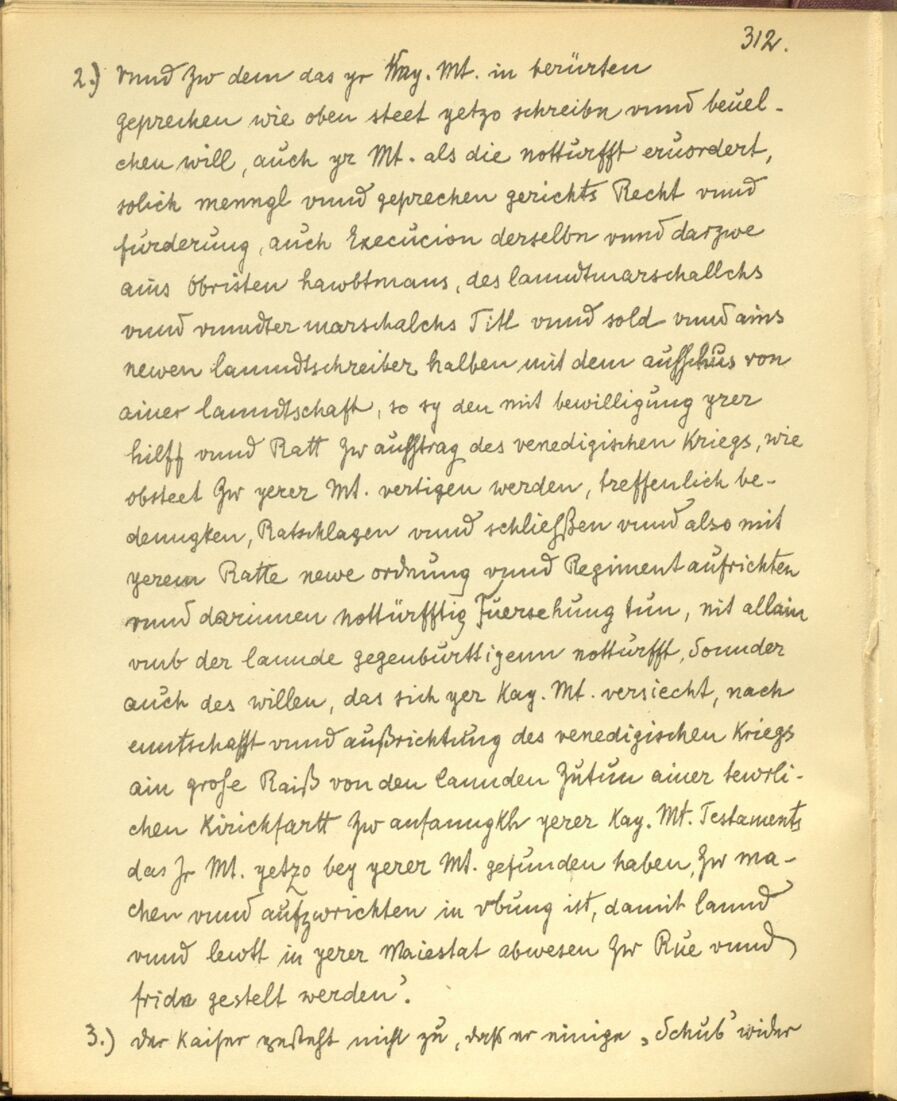 312.
2.) vnnd zw dem das yr Kay. Mt. in berürten
geprechen wie oben steet yetzo schreibn vnnd beuel-
chen will, auch yr Mt. als die notturfft eruordert,
solich menngl vnnd geprechen gerichts Recht vnnd
furderung, auch Execucion derselbn vnnd darzwe
ains Obristen hawbtmans, des lanndtmarschallchs
vnnd vnndter marschalchs Titl vnnd sold vnnd ains
newen lanndtschreiber halben mit dem aufschus von
ainer lanndtschaft, so sy den mit bewilligung yrer
hilff vnnd Ratt zw aufftrag des venedigischen Kriegs, wie
obsteet zw yerer Mt. vertigen werden, treffenlich be-
denngken, Ratschlagen vnnd schließen vnnd also mit
yerem Ratte newe ordnung vnnd Regiment aufrichten
vnnd darinnen nottürfftig Fuersehung tun, nit allain
vmb der lannde gegenburttigenn notturfft, Sonnder
auch des willen, das sich yer Kay. Mt. versiecht, nach
enntschafft vnnd außrichtung des venedigischen Kriegs
ain große Raiß von den lannden zutun ainer tewrli-
chen Kirichfartt zw anfanngkh yerer Kay. Mt. Testaments
das Jr Mt. yetzo bey yerer Mt. gefunden haben, zw ma-
chen vnnd aufzwrichten in vbung ist, damit lannd
vnnd lewtt in yerer Maiestat abwesen zw Rue vnnd
fride gestelt werden'.
3.) Der Kaiser gesteht nicht zu, daß er einige „Schub" wider